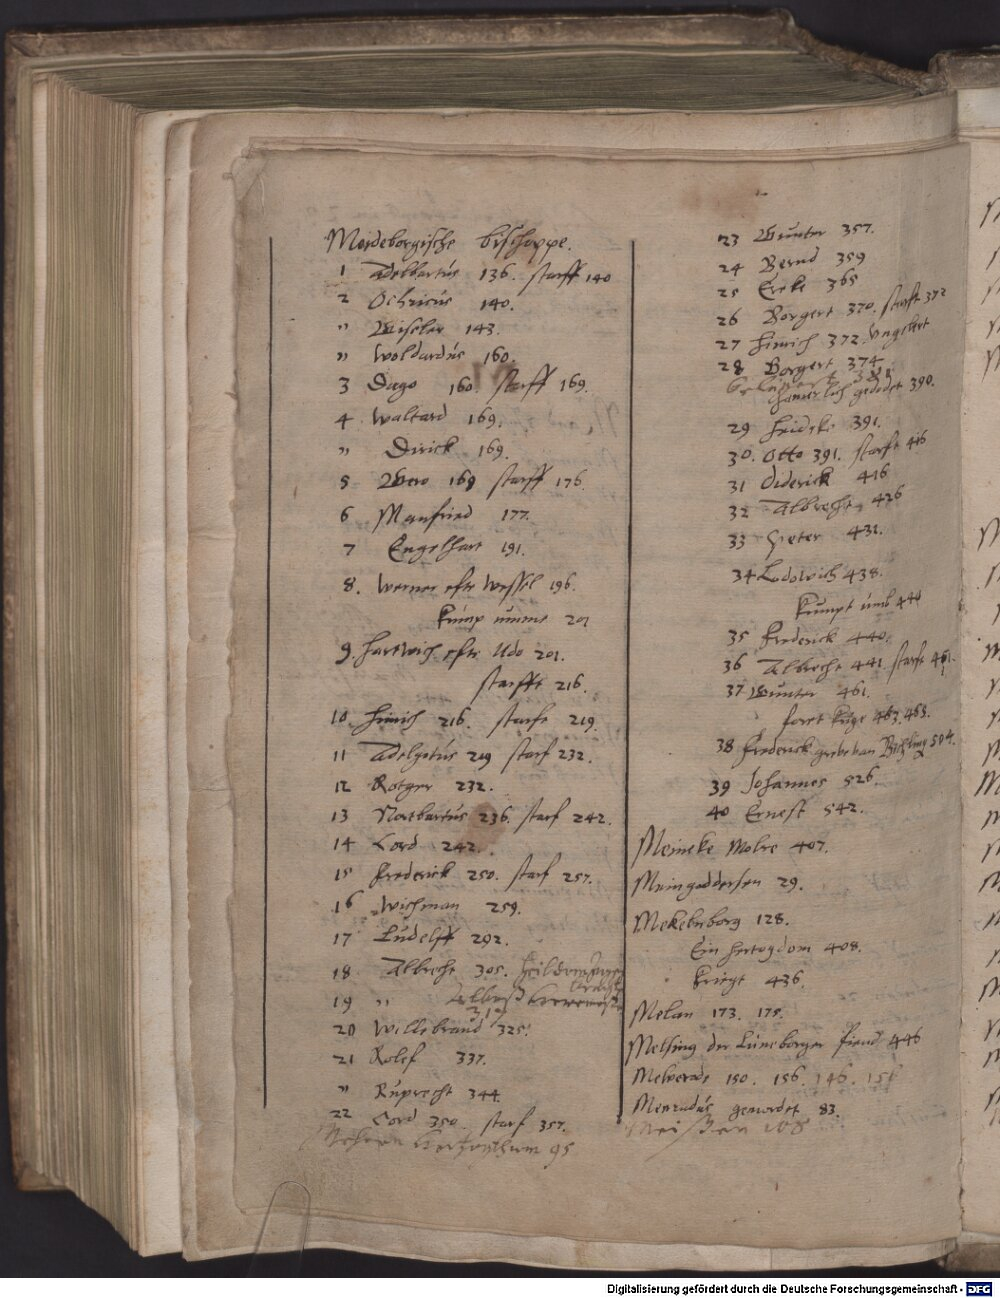 Meideborgische bischoppe.
1 Adelbartus 136. starff 140
2 Ochricus 140.
" Giseler 143.
" Woldardus 160.
3 Dago 160. starff 169.
4 Waltard 169.
" Dirick 169.
5 Gero 169 starff 176.
6 Manfried 177.
7 Engelhart 191.
8. Werner efte Wessel 196.
kump umme 201
9. Hartwich efte Udo 201.
starfft 216.
10 Hinrich 216 starfe 219.
11 Adelgotus 219 starf 232.
12 Rotger 232.
13 Nortbartus 236. starf 242.
14 Cord 242.
15 Frederick 250. starf 257.
16 Wichman 259.
17 Ludelff 292.
18. Albrecht 305.
19 "
317
20 Willebrand 325.
21 Rolef 337.
" Ruprecht 344
22 Cord 350. starf 357.
95
23 Gunter 357.
24 Bernd 359
25 Ereke 365
26 Borgert 370. starft 372
27 Hinrich 372. ungelert
28 Borgert 374
gedodet 390.
29 Heideke 391.
30. Otto 391. starft 416
31 Diderick 416
32 Albrecht 426
33 Peter 431.
34 Lodowich 438.
kumpt umb 440
35 Frederick 440.
36 Albrecht 441. starft 461.
37 Gunter 461.
463. 468.
38 Frederick van 504.
39 Johannes 526.
40 Ernest 542.
Meineke Molre 407.
Meingoddersen 29.
Mekelnborg 128.
Ein hertogdom 408.
kriegt 436.
Melan 173. 175.
Melsing der Luneborger fiend 446
Melverode 150. 156. 146. 156
Menradus gemordet 83.
Meißen 108